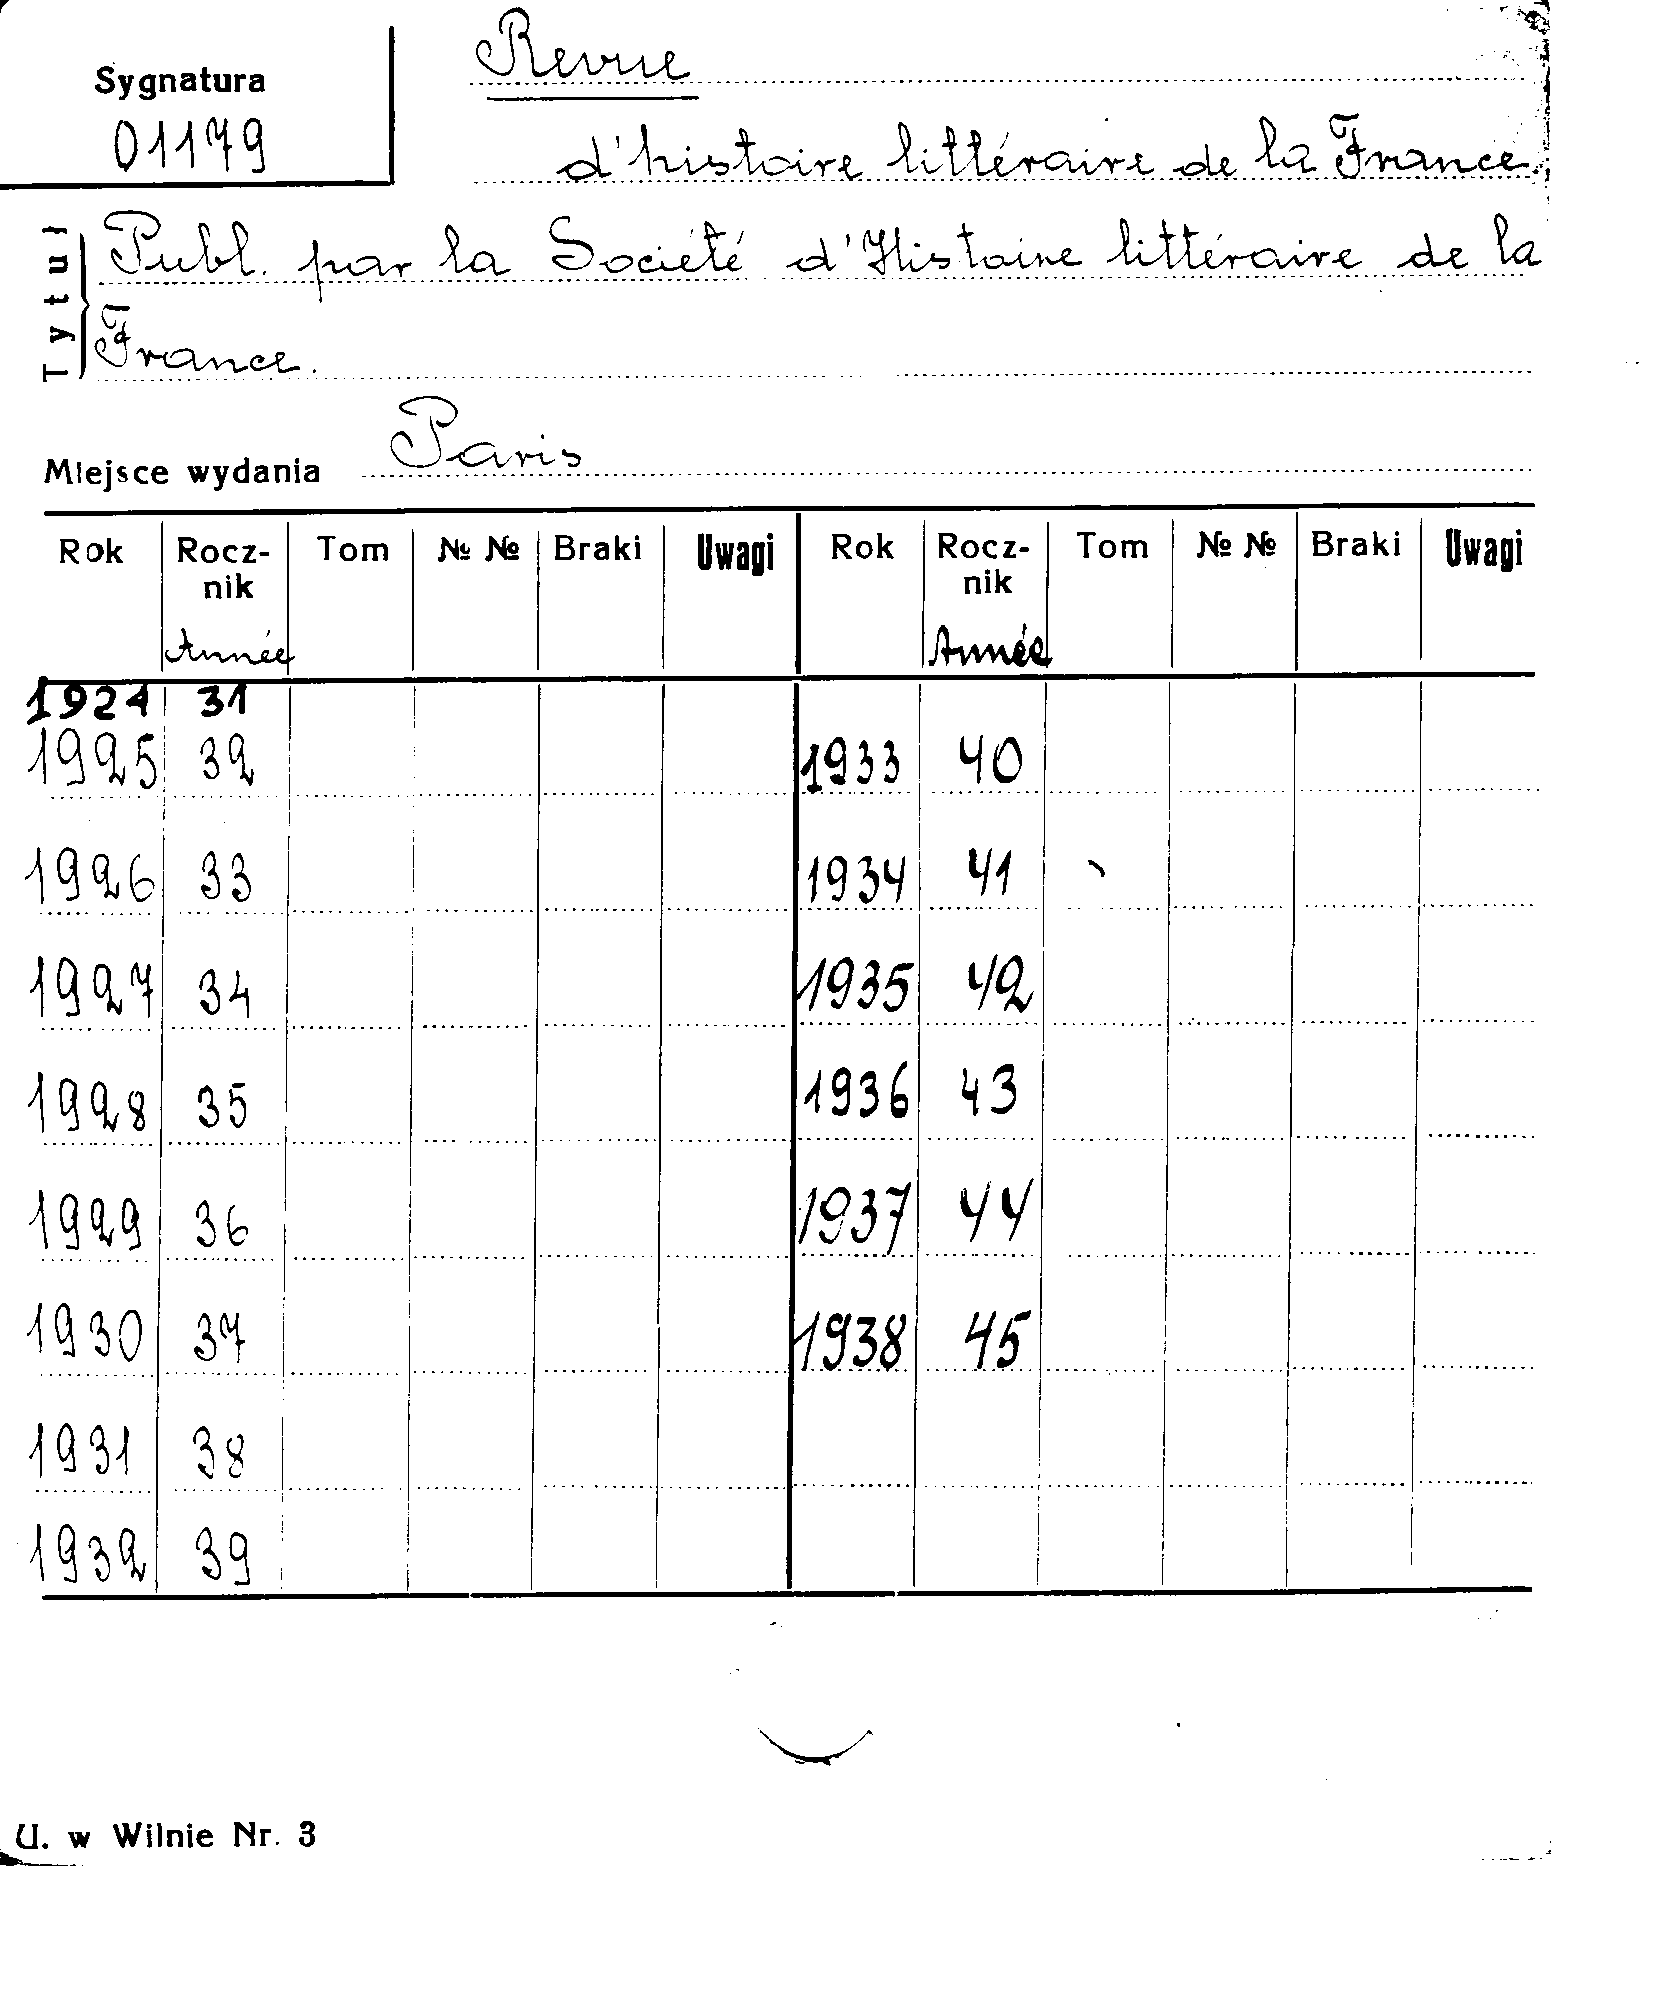 Sygnatura
01179
Revue
d'histoire littéraire de la France
Tytuł
Publ. par la Société d'Histoire littéraire de la
France.
Miejsce wydania Paris
Rok Rocz-nik Tom № № Braki Uwagi Rok Rocz-nik Tom № № Braki Uwagi
Année Année
1924 31
1925 32 1933 40
1926 33 1934 41
1927 34 1935 42
1928 35 1936 43
1929 36 1937 44
1930 37 1938 45
1931 38
1932 39
U. w Wilnie Nr. 3